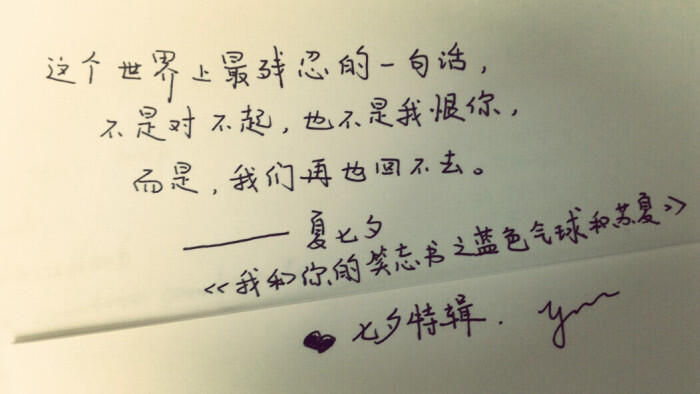 这个世界上最残忍的一句话，
不是对不起，也不是我恨你，
而是，我们再也回不去。
—— 夏七夕
《我和你的笑忘书之蓝色气球和苏夏》
♥ 七夕特辑．